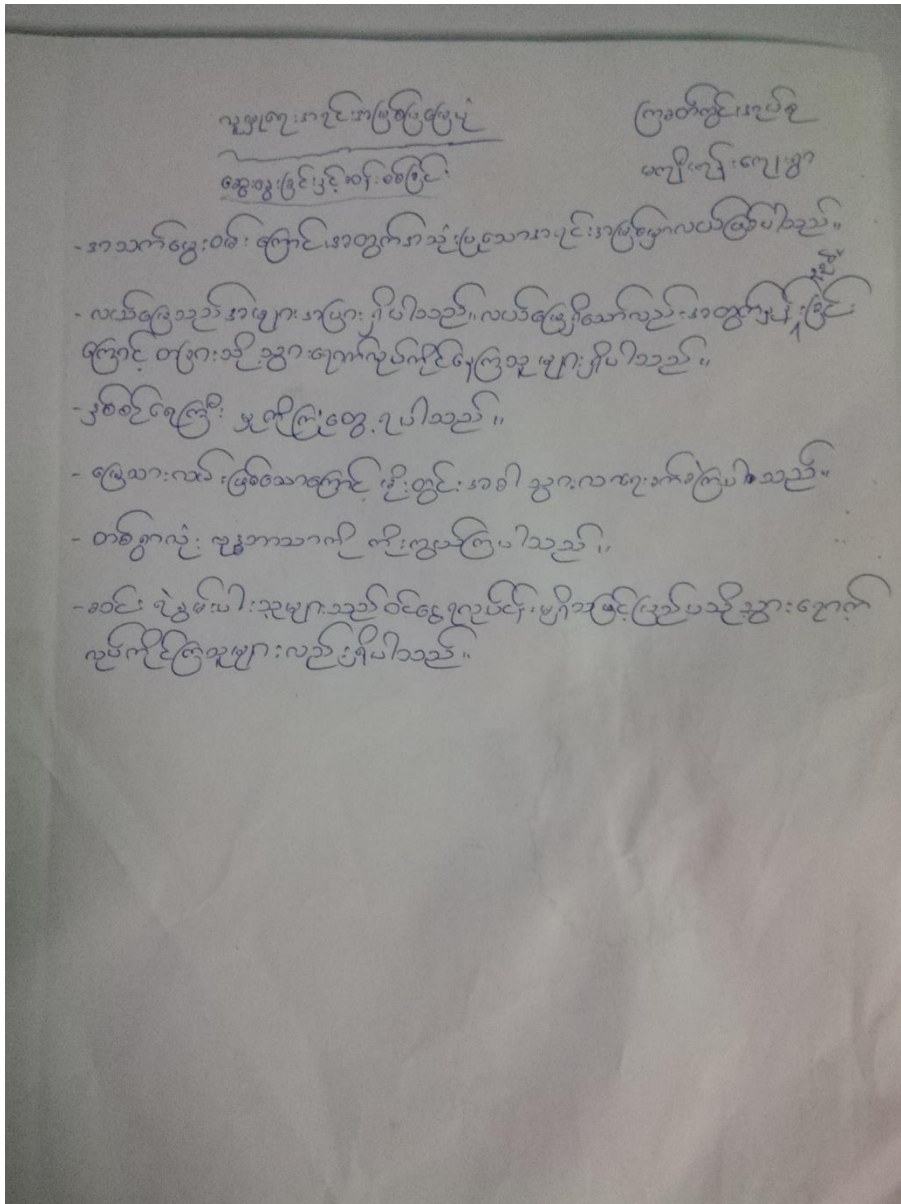 လူမှုရေးအရင်းအမြစ်ပြမြေပုံ
ကြခတ်ကွင်းအုပ်စု
ဆွေးနွေးခြင်းနှင့်ဆန်းစစ်ခြင်း
မကျီးကျွန်းကျေးရွာ
- အသက်မွေးဝမ်းကြောင်းအတွက်အသုံးပြုသောအရင်းအမြစ်မှာလယ်ဖြစ်ပါသည်။
- လယ်မြေသည်အများအပြားရှိပါသည်။လယ်မြေရှိသော်လည်းအတွက်ရှုံးခြင်း
ကြောင့် တခြားသို့သွားရောက်လုပ်ကိုင်နေကြသူများရှိပါသည်။
- နှစ်စဉ်ရေကြီးမှုကိုကြုံတွေ့ရပါသည်။
- မြေသားလမ်းဖြစ်သောကြောင့် မိုးတွင်းအခါ သွားလာရေးခက်ခဲကြပါသည်။
- တစ်ရွာလုံး ဗုဒ္ဓဘာသာကို ကိုးကွယ်ကြပါသည်။
- ဆင်းရဲနွမ်းပါးသူများသည်ဝင်ငွေရလုပ်ငန်းမရှိသဖြင့်ပြည်ပသို့သွားရောက်
လုပ်ကိုင်ကြသူများလည်းရှိပါသည်။